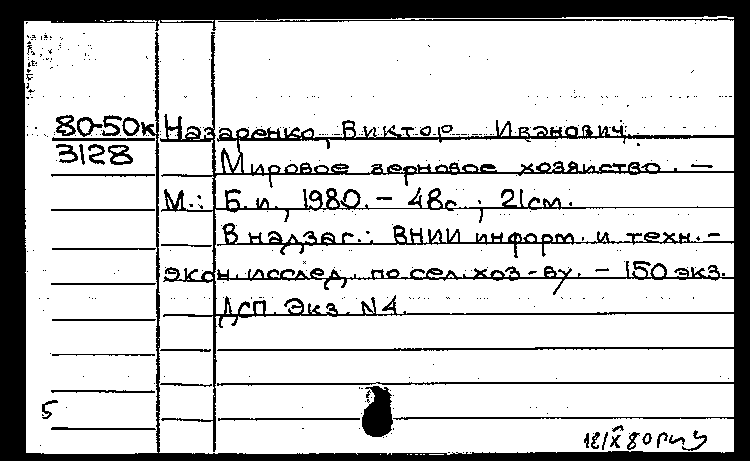 80-50к Назаренко, Виктор Иванович.
3128 Мировое зерновое хозяйство. —
М.: Б.и., 1980. — 48с.; 21см.
В надзаг.: ВНИИ информ. и техн.-
экон. исслед. по сел. хоз-ву. — 150 экз.
ДСП. Экз. N4.
5